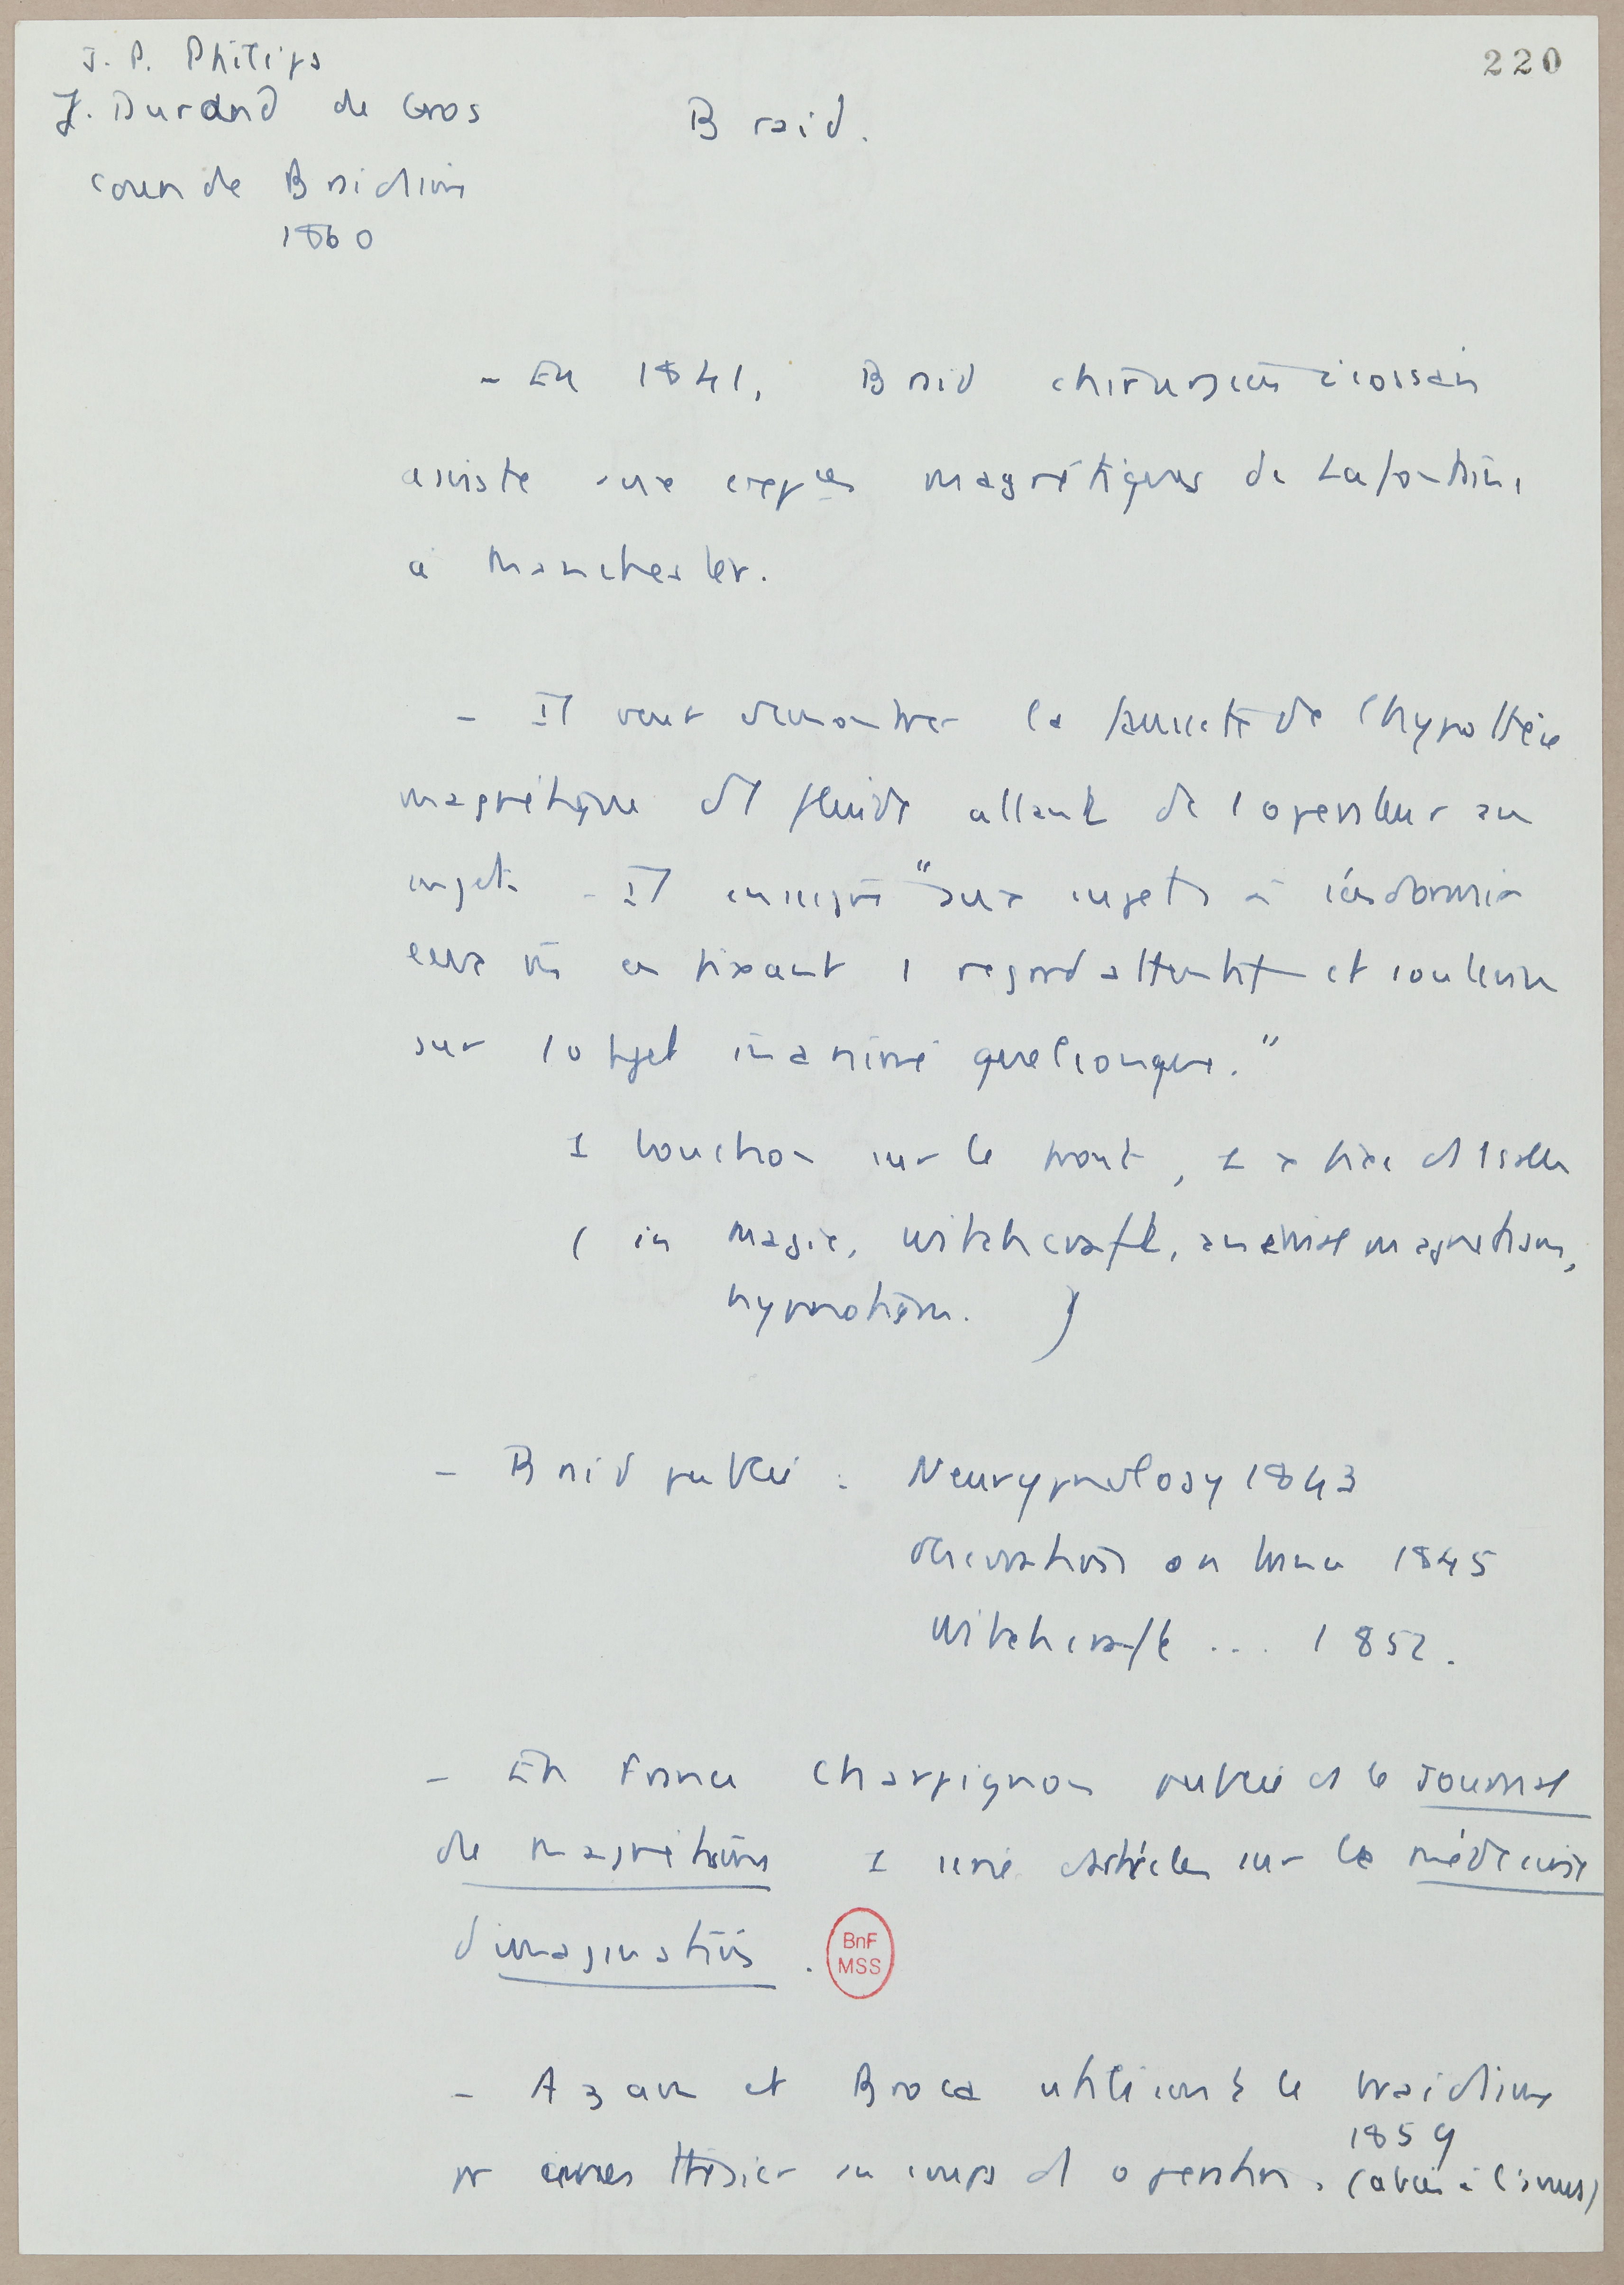 J. P. Philips
J. Durand de Gros
cours de Braidisme
1860
220
Braid.
- En 1841, Braid chirurgien écossais
assiste aux expces magnétiques de Lafontaine
à Manchester.
- Il veut démontrer la fausseté de l'hypothèse
magnétique d'1 fluide allant de l'opérateur au
sujet. - Il enseigne "aux sujets à s'endormir
eux m̂ en fixant 1 regard attentif et soutenu
sur 1 objet inanimé quelconque."
1 bouchon sur le front, 1 fixe d 1 salle
( in Magic, witchcraft, animal magnetism,
hypnotism. )
- Braid publie : Neurypnology 1843
observations on trance 1845
Witchcraft ... 1852.
- En France Charpignon publie ds le Journal
de magnétisme 1 série d'articles sur la médecine
d'imagination .
BnF
MSS
- Azam et Broca utilisent le braidisme
pr anesthésier au cours d'1 opération. (abcès à l'anus)
1859